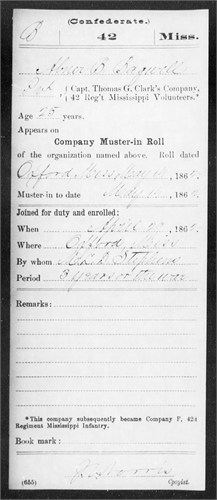 (Confederate.)
B 42 Miss.
Abner B. Bagwell
Pvt., Capt. Thomas G. Clark's Company,
42 Reg't Mississippi Volunteers.*
Age 25 years.
Appears on
Company Muster-in Roll
of the organization named above. Roll dated
Oxford, Miss, May 14, 1862.
Muster-in to date May 14, 1862.
Joined for duty and enrolled:
When April 29, 1862.
Where Oxford, Miss
By whom M. D. L. Stephens
Period 3 years or the war
Remarks:
*This company subsequently became Company F, 42d
Regiment Mississippi Infantry.
Book mark:
Morris
(655) Copyist.